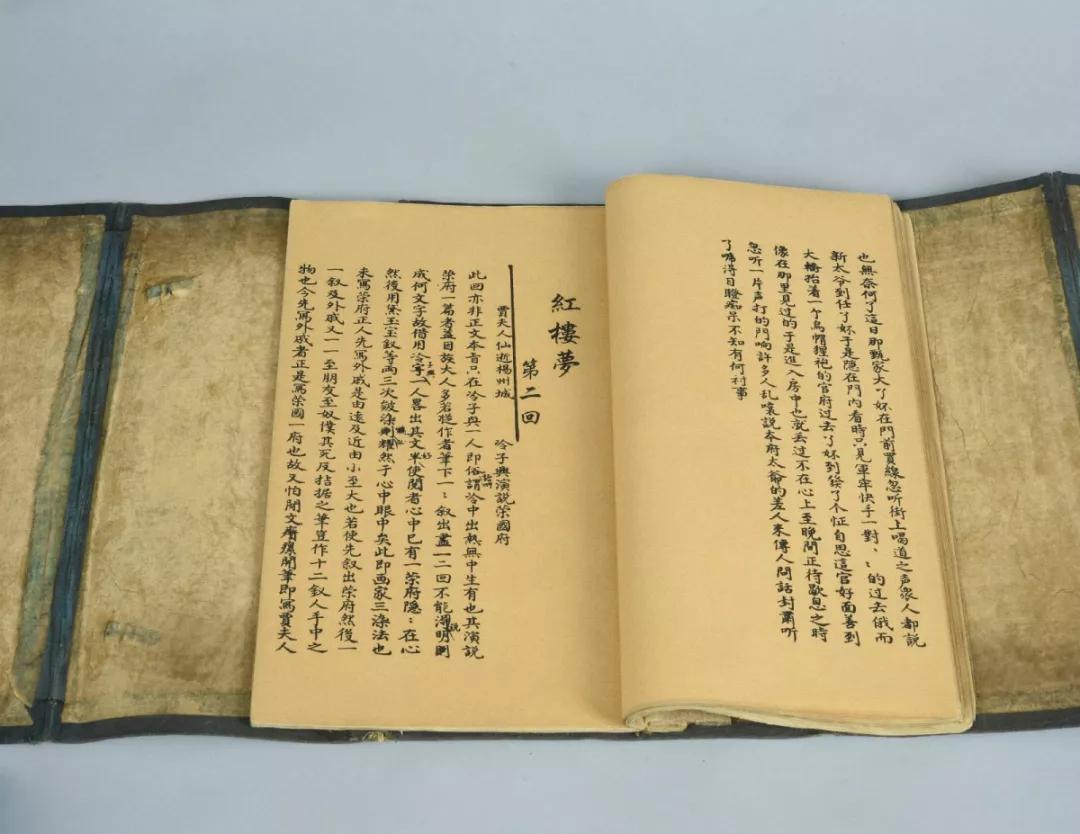 也無奈何了這日那甄家大丫妳在門前買線忽听街上喝道之声衆人都説
新太爷到任了丫妳于是隐在門内看時只見軍牢快手一對〻的过去俄而
大轎抬着一个烏帽猩袍的官府过去了丫妳到發了个怔自思這官好面善到
像在那里見过的于是進入房中也就丢过不在心上至晚間正待歇息之時
忽听一片声打的門响許多人乱嚷説本府太爺的差人来傳人問話封肅听
了唬得目瞪痴呆不知有何禍事
紅樓夢
第二回
賈夫人仙逝楊州城 冷子興演説榮國府
此回亦非正文本旨只在冷子興一人即俗謂冷中出熱無中生有也其演説
榮府一篇者盖因族大人多若從作者筆下一〻叙出盡一二回不能得明則
成何文字故借用冷字一人畧出其文半使閱者心中已有一榮府隐〻在心
然後用黛玉宝釵等両三次皴染則耀然于心中眼中矣此即画家三染法也
未寫榮府正人先寫外戚是由遠及近由小至大也若使先叙出榮府然後一
一叙及外戚又一一至朋友至奴僕其死反拮据之筆豈作十二釵人手中之
物也今先寫外戚者正是寫榮國一府也故又怕閑文開筆即寫賈夫人